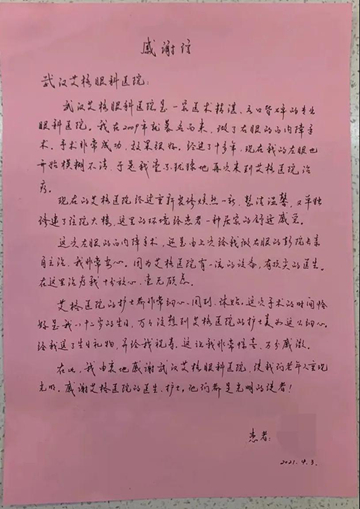 感谢信
武汉艾格眼科医院:
武汉艾格眼科医院是一家医术精湛、口碑双丰的专业
眼科医院。我在2009年就慕名而来,做了右眼的白内障手
术。手术非常成功,效果很好。经过了十多年,现在我的左眼也
开始模糊不清,于是我毫不犹豫地再次来到艾格医院治
疗。
现在的艾格医院经过重新装修焕然一新,整洁温馨,又单独
修建了住院大楼,这里的环境给患者一种居家的舒适感觉。
这次左眼的白内障手术,还是由上次给我做右眼的彭院长亲
自主治,我非常安心。因为艾格医院有一流的设备,有顶尖的医生。
在这里治疗我十分放心,毫无顾虑。
艾格医院的护士都非常细心、周到、体贴。这次手术的时间恰
好是我八十二岁的生日,万万没想到艾格医院的护士是如此细心,
给我送了生日礼物,并给我祝寿,这让我非常惊喜,万分感激。
在此,我由衷地感谢武汉艾格眼科医院,使我们老年人重现
光明。感谢艾格医院的医生、护士,他们都是光明的使者!
患者:
2021.4.3.